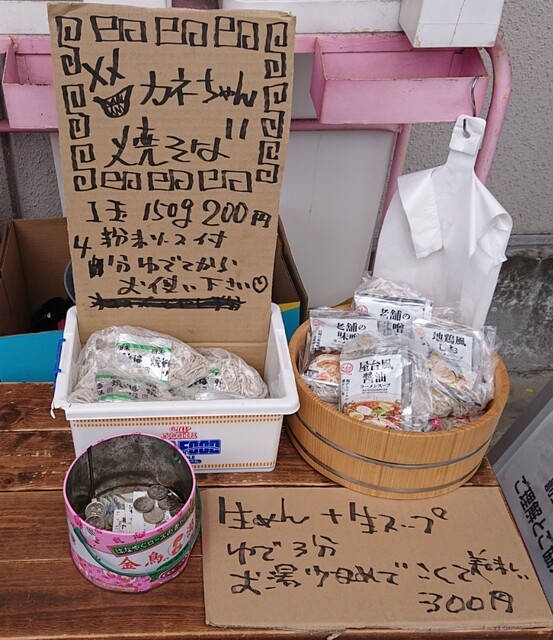 カネちゃん
焼そば
1玉 150g 200円
粉末ソース付
4分ゆでてから
お使い下さい♡
老舗の
味噌
老舗の
味噌
地鶏風
しお
屋台風
醤油
ラーメンスープ
金魚
生めん+生スープ
ゆで3分
お湯少なめで こくて美味しい
300円